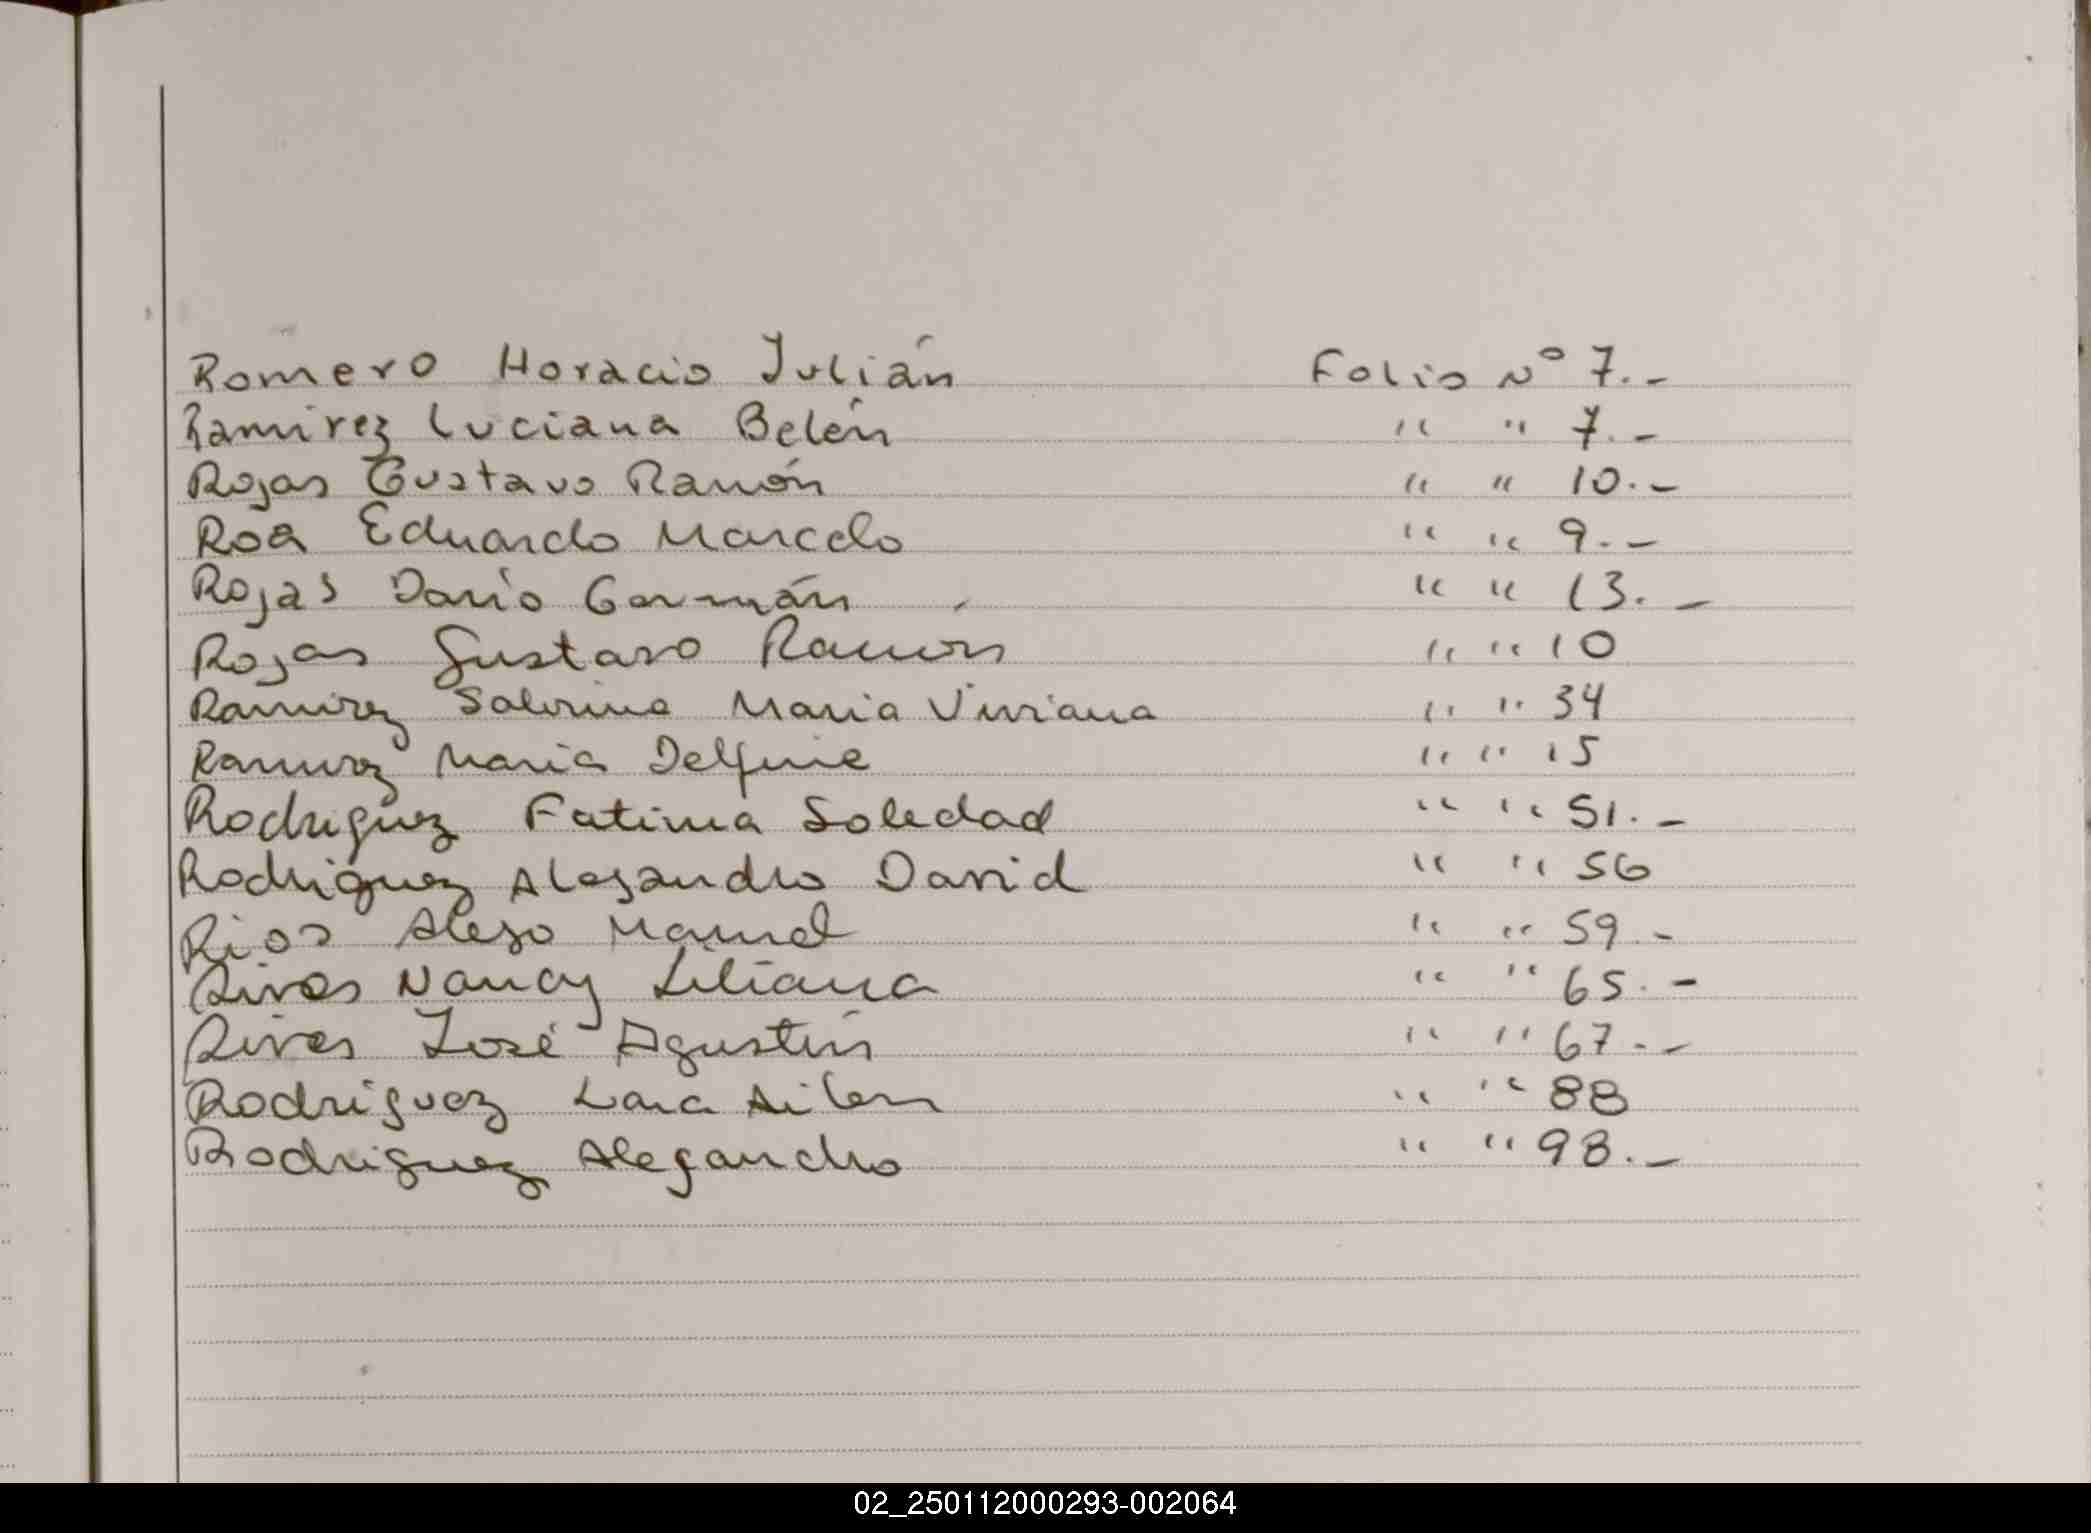 Romero Horacio Julián Folio N° 7.-
Ramirez Luciana Belén " " 7.-
Rojas Gustavo Ramón " " 10.-
Roa Eduardo Marcelo " " 9.-
Rojas Darío Germán " " 13.-
Rojas Gustavo Ramón " " 10
Ramirez Sabrina Maria Viviana " " 34
Ramirez Maria Delfina " " 15
Rodriguez Fatima Soledad " " 51.-
Rodriguez Alejandro David " " 56
Rios Alejo Manuel " " 59.-
Rivas Nancy Liliana " " 65.-
Rivas José Agustín " " 67.-
Rodriguez Lara Ailen " " 88
Rodriguez Alejandro " " 98.-
02_250112000293-002064